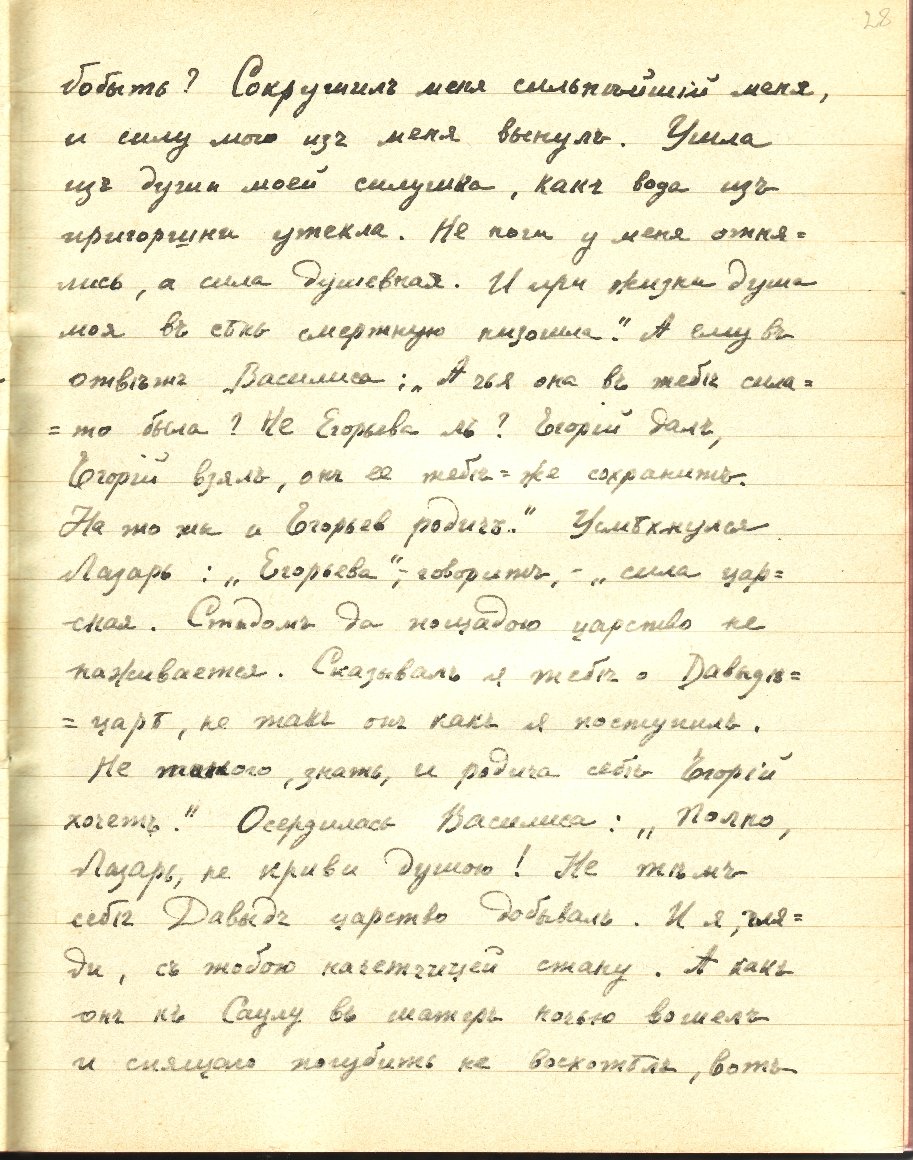 28
бобыть? Сокрушилъ меня сильнѣйшій меня,
и силу мою изъ меня вынулъ. Ушла
изъ души моей силушка, какъ вода изъ
пригоршни утекла. Не ноги у меня отня=
лись, а сила душевная. И при жизни душа
моя въ сѣнь смертную низошла." А ему въ
отвѣтъ Василиса: „А чья она въ тебѣ сила=
=то была? Не Егорьева ль? Егорій далъ,
Егорій взялъ, онъ ее тебѣ=же сохранитъ.
На то ты и Егорьев родичъ." Усмѣхнулся
Лазарь: „Егорьева",- говоритъ,- „сила цар=
ская. Стыдомъ да пощадою царство не
наживается. Сказывалъ я тебѣ о Давыдѣ=
=царѣ, не такъ онъ какъ я поступилъ.
Не такого, знать, и родича себѣ Егорій
хочетъ." Осердилась Василиса: „Полно,
Лазарь, не криви душою! Не тѣмъ
себѣ Давыдъ царство добывалъ. И я, гля=
ди, съ тобою начетчицей стану. А какъ
онъ къ Саулу въ шатеръ ночью вошелъ
и спящаго погубить не восхотѣлъ, вотъ